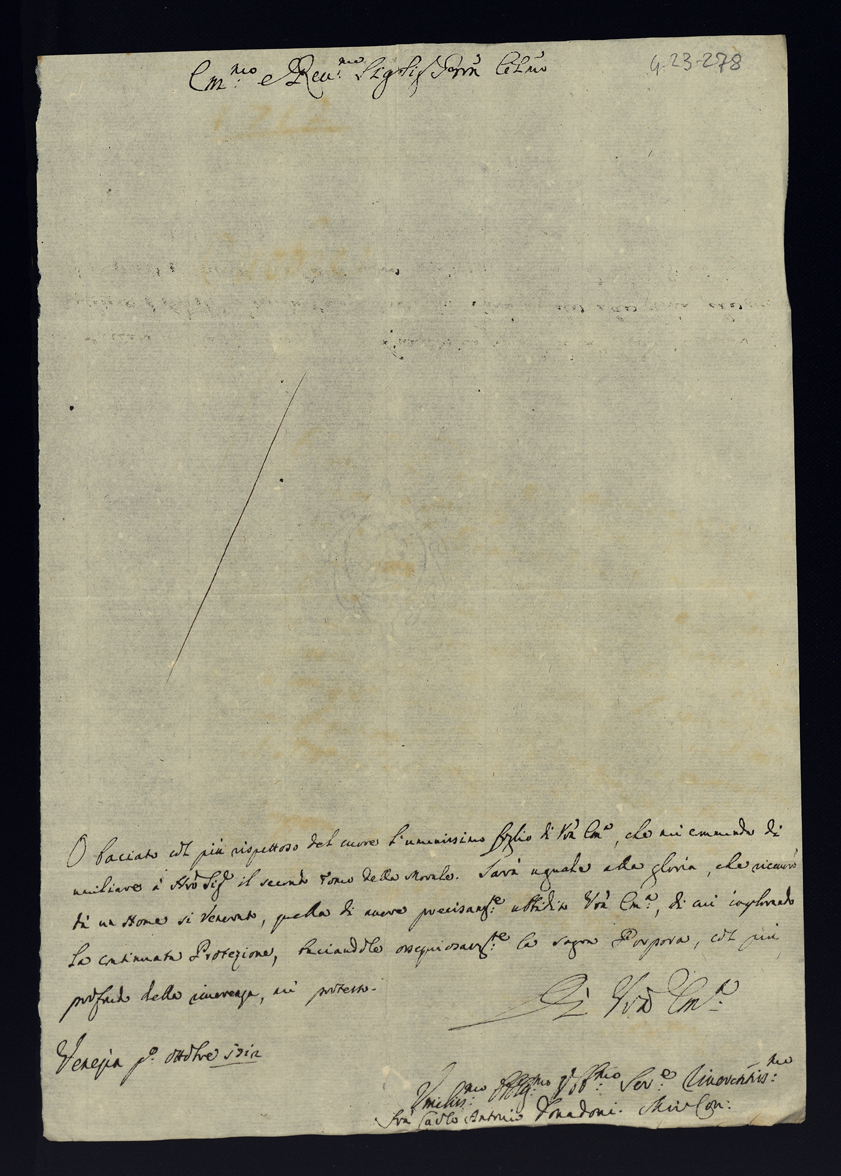 Em.mo e Reu.mo Sig.
G-23-278
O baciato col più rispettoso del cuore l'umanissimo foglio di Vra Em.a, che mi comanda di
umiliare à il secondo Tomo della Morale. Sarà uguale alla gloria, che riceverà
da un Nome si Venerato, quella di avere precisam.te ubbidita Vra Em.a, di cui implorando
la continuata Protezione, baciandole ossequiosam.te la Sagra Porpora, col più
profondo della riverenza, mi protesto.
Di Vra Em.a
Venezia p.o ottobre 1712
Umilis.mo Obblig.mo Ser.e Riverentis.mo
Fra Carlo Antonio Donadoni. Min: Con: